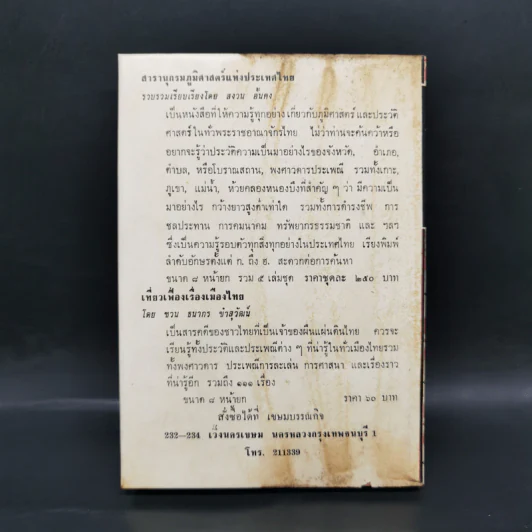 สารานุกรมภูมิศาสตร์แห่งประเทศไทย
รวบรวมเรียบเรียงโดย สงวน อั้นคง
เป็นหนังสือที่ให้ความรู้ทุกอย่าง เกี่ยวกับภูมิศาสตร์ และประวัติ
ศาสตร์ ในทั่วพระราชอาณาจักรไทย ไม่ว่าท่านจะค้นคว้าหรือ
อยากจะรู้ว่าประวัติความเป็นมาอย่างไรของจังหวัด, อำเภอ,
ตำบล, หรือโบราณสถาน, พงศาวดารประเพณี รวมทั้งเกาะ,
ภูเขา, แม่น้ำ, ห้วยคลองหนองบึงที่สำคัญ ๆ ว่า มีความเป็น
มาอย่างไร กว้างยาวสูงต่ำเท่าใด รวมทั้งการดำรงชีพ การ
ชลประทาน การคมนาคม ทรัพยากรธรรมชาติ และ ฯลฯ
ซึ่งเป็นความรู้รอบตัวทุกสิ่งทุกอย่างในประเทศไทย เรียงพิมพ์
ลำดับอักษรตั้งแต่ ก. ถึง ฮ. สะดวกต่อการค้นหา
ขนาด ๘ หน้ายก รวม ๕ เล่มชุด ราคาชุดละ ๒๕๐ บาท
เที่ยวเฟื่องเรื่องเมืองไทย
โดย ชวน ธนากร ขำสุวัฒน์
เป็นสารคดีของชาวไทยที่เป็นเจ้าของผืนแผ่นดินไทย ควรจะ
เรียนรู้ทั้งประวัติและประเพณีต่าง ๆ ที่น่ารู้ในทั่วเมืองไทยรวม
ทั้งพงศาวดาร ประเพณีการละเล่น การศาสนา และเรื่องราว
ที่น่ารู้อีก รวมถึง ๑๑๑ เรื่อง
ขนาด ๘ หน้ายก ราคา ๖๐ บาท
สั่งซื้อได้ที่ เขษมบรรณกิจ
232—234 เวิ้งนครเขษม นครหลวงกรุงเทพธนบุรี 1
โทร. 211339